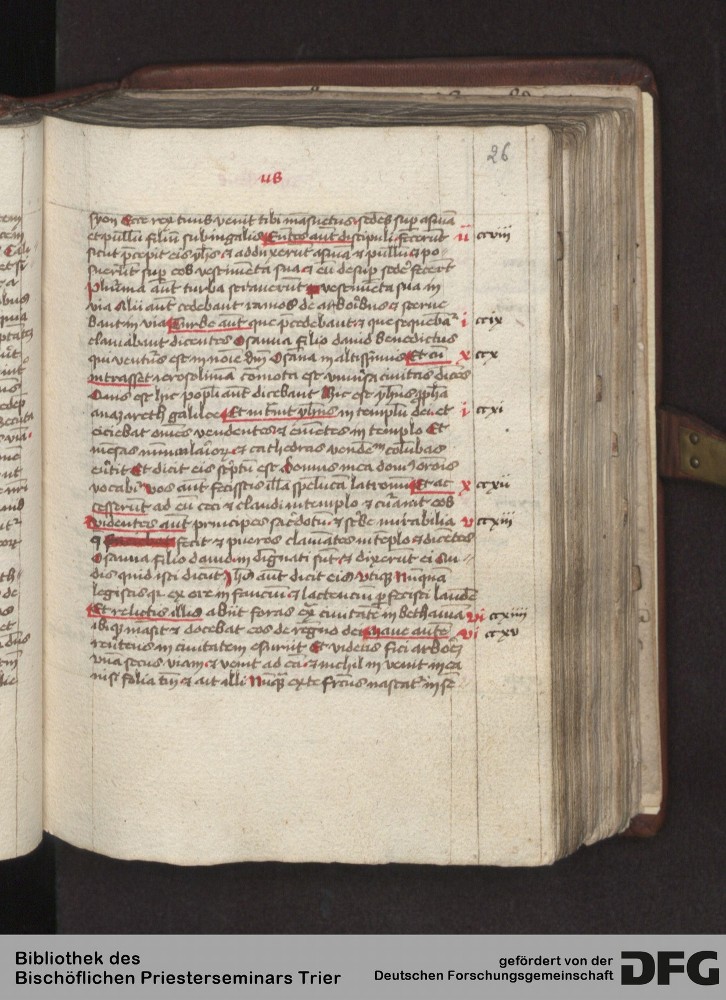 26
syon Ecce rex tuus venit tibi māsuetus sedēs sup asinā
et pullū filiū subiugalis Eūtes aūt discipuli fecerūt ii ccviii
sicut p̄cepit eis ihs et addūxerūt asinā et pullū et po
suerūt sup eos vestimēta sua et eū desup sede᷑ fecerūt
Plurima aūt turba straverūt vestimēta sua in
via Alii aūt cedebant ramos de arboribus et sterne
bant in via Turbe aūt que p̄cedebant et que sequebāt᷑ i ccix
clamabant dicentes Osanna filio david benedictus
qui venturus est in noīe dn̄i Osana in altissimis Et cū x ccx
intrasset ierosolimā cōmota est univ̄sa civitas dicēs
Quis est hic popli aūt dicebant Hic est ihus ppha
a nazareth galilee Et intravit ihus in templū dei et i ccxi
eiciebat oīnes vendentes et emētes in templo Et
mēsas numulariorꝫ et cathedras vendentiū columbas
evertit Et dicit eis scriptū est Domus mea dom orōnis
vocabit᷑ vos aūt fecistis illā speluncā latronū Et ac x ccxii
cesserūt ad eū ceci et claudi in templo et curavit eos
videntes aūt principes sacerdotū et scribe mirabilia v ccxiii
q fecit et pueros clamātes in tēplo et dicētes
Osanna filio david indignati sūt et dixerūt ei au
dis quid isti dicūt Ihs aūt dicit eis utiqꝫ Nūquā
legistis qr ex ore infanciū et lactenciū pfecisti laudē
Et relictis illis abiit foras ext᷑ civitatē in bethaniā vi ccxiiii
ibiqꝫ māsit et docebat eos de regno dei mane autē vi ccxv
revertens in civitatem esuriit Et videns fici arborē
unā secus viam et venit ad eā et nichil invenit in ea
nisi folia tm̄ et ait illi Nūqꝫ ex te fructus nascat᷑ in sē
Bibliothek des
Bischöflichen Priesterseminars Trier
gefördert von der
Deutschen Forschungsgemeinschaft
DFG